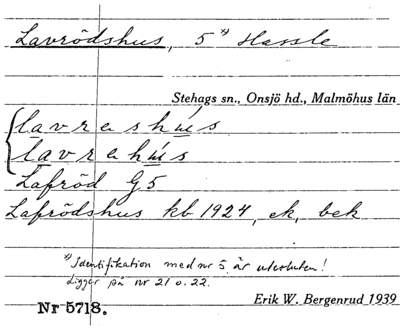 Lavrödshus, 5 *) Hassle
Stehags sn., Onsjö hd., Malmöhus län
lavrashús
lavrahús
Lafröd G5
Lafrödshus kb 1924, ek, bek
*) Identifikation med nr 5 är utesluten!
Ligger på nr 21 o. 22.
Nr 5718.
Erik W. Bergenrud 1939